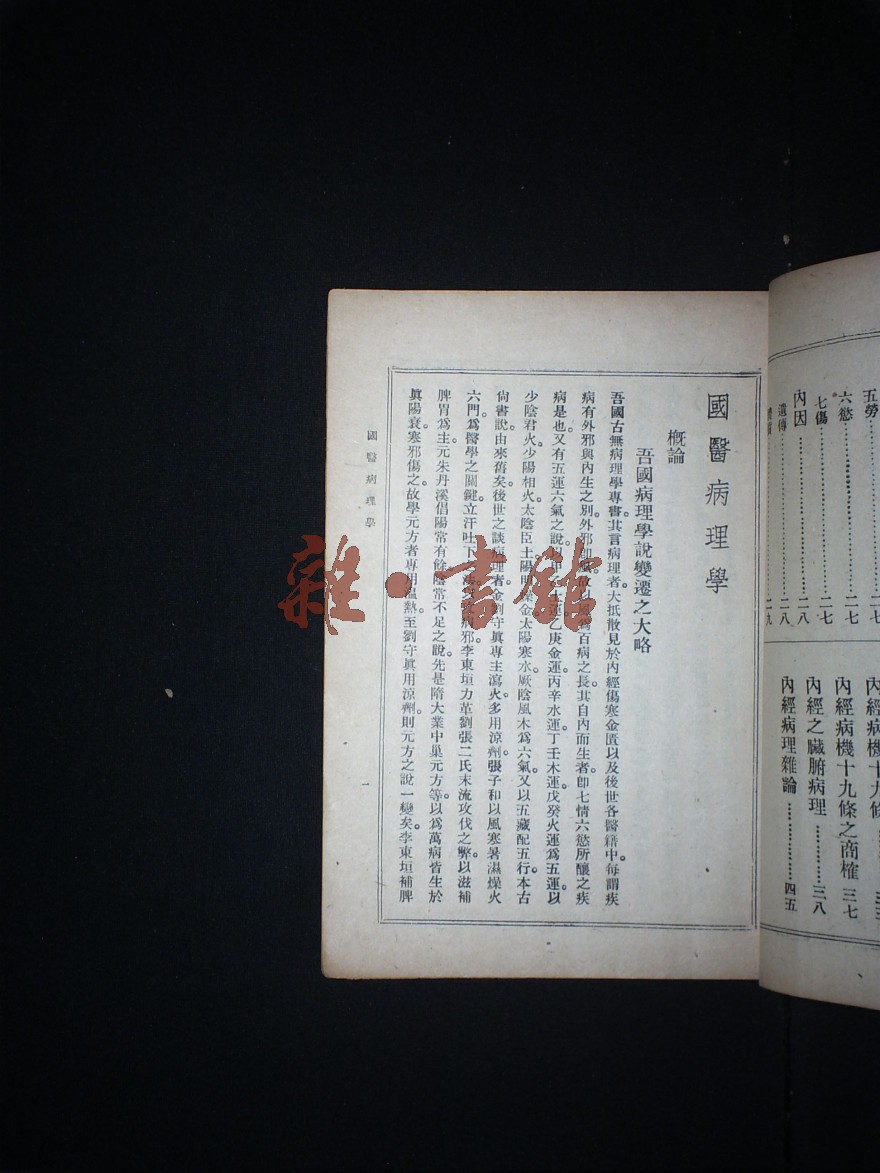 五勞……………二七
六慾……………二七
七傷……………二七
內因……………二八
遺傳……………二八
二九
內經病機十九條
內經病機十九條之商榷 三七
內經之臟腑病理…………三八
內經病理雜論……………四五
國醫病理學
概論
吾國病理學說變遷之大略
吾國古無病理學專書。其言病理者。大抵散見於內經傷寒金匱以及後世各醫籍中。每謂疾
病有外邪與內生之別。外邪即風。故以風為百病之長。其自內而生者。即七情六慾所釀之疾
病是也。又有五運六氣之說。以甲乙土運。乙庚金運。丙辛水運。丁壬木運。戊癸火運。為五運。以
少陰君火。少陽相火。太陰臣土。陽明燥金。太陽寒水。厥陰風木為六氣。又以五藏配五行。本古
尙書說。由來舊矣。後世之談病理者。金劉守眞專主瀉火。多用涼劑。張子和以風寒暑濕燥火
六門。為醫學之關鍵。立汗吐下病邪。李東垣力革劉張二氏末流攻伐之弊。以滋補
脾胃為主。元朱丹溪倡陽常有餘陰常不足之說。先是隋大業中巢元方等。以為萬病皆生於
眞陽衰。寒邪傷之。故學元方者專用溫熱。至劉守眞用涼劑。則元方之說一變矣。李東垣補脾
國醫病理學
一
雜·書館